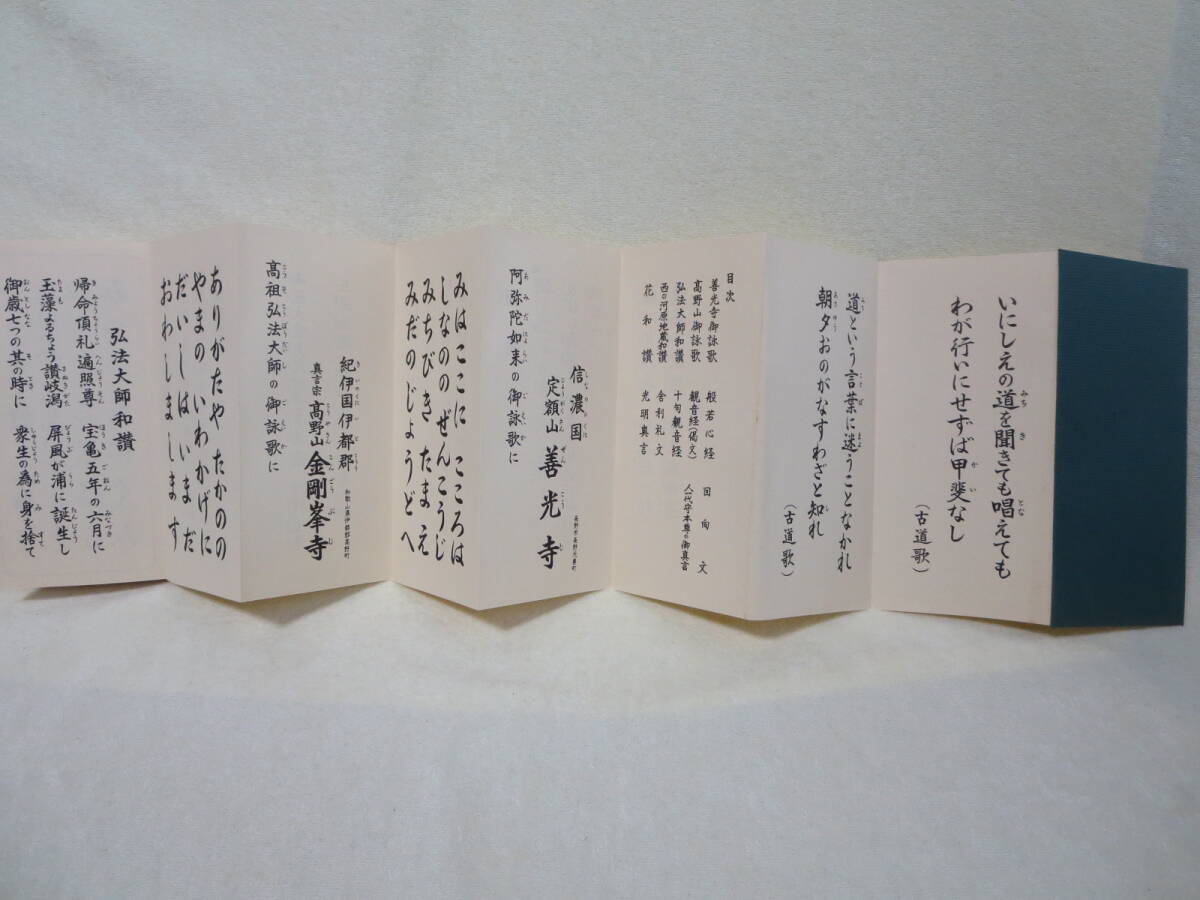 いにしえの道を聞きても唱えても
わが行いにせずば甲斐なし
(古道歌)
道という言葉に迷うことなかれ
朝夕おのがなすわざと知れ
(古道歌)
目次
善光寺御詠歌 般若心経 回向文
高野山御詠歌 観音経(偈文) 人一代守本尊の御真言
弘法大師和讃 十句観音経
西の河原地蔵和讃 舎利礼文
花和讃 光明真言
信濃国
定額山 善光寺
長野市長野元善町
阿弥陀如来の御詠歌に
みはここに こころは
しなののぜんこうじ
みちびきたまえ
みだのじょうどへ
紀伊国伊都郡
和歌山県伊都郡高野町
真言宗 髙野山 金剛峯寺
髙祖弘法大師の御詠歌に
ありがたや たかのの
やまの いわかげに
だいしは いまだ
おわしまします
弘法大師和讃
帰命頂礼遍照尊 宝亀五年の六月に
玉藻よるちょう讃岐潟 屏風が浦に誕生し
御歳七つの其の時に 衆生の為に身を捨て